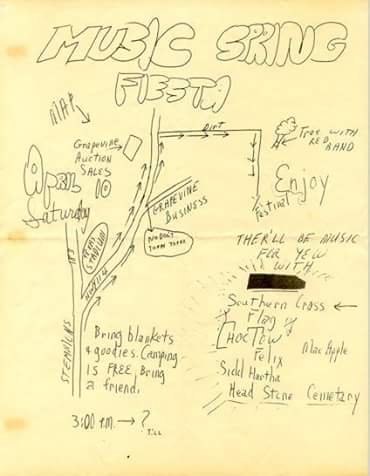 MUSIC SPRING
FIESTA
MAP
DIRT
Grapevine
AUCTION
SALES
Tree WITH
RED
BAND
April
10
Saturday
Enjoy
Festival
GRAPEVINE
BUSINESS
TEXAS
STADIUM
HIWAY 114
THER'LL BE MUSIC
FOR YEW
WITH
Southern Cross
Flag
CHOCTOW
Felix
Mac Apple
Sidd Hartha
Head Stone Cemetary
STEMMONS
Bring blankets
& goodies. Camping
IS FREE. Bring
a friend.
3:00 P.M. → ?
TILL